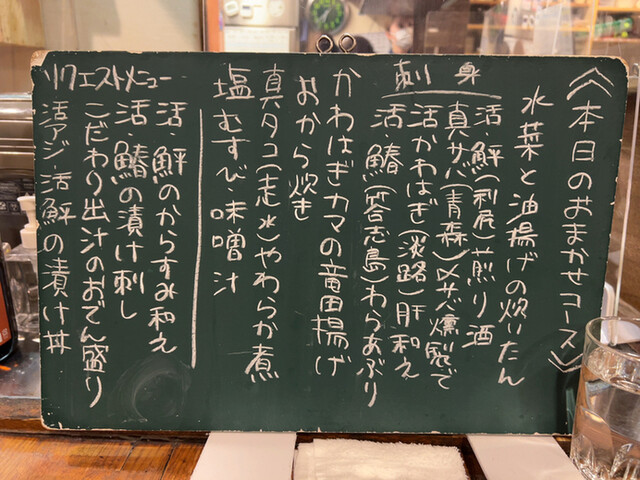 《本日のおまかせコース》
水菜と油揚げの炊いたん
刺身
活・鮃(利尻)煎り酒
真サバ(青森)〆サバ燻製で
活かわはぎ(淡路)肝和え
活・鰆(答志島)わらあぶり
かわはぎカマの竜田揚げ
おから炊き
真タコ(走水)やわらか煮
塩むすび・味噌汁
リクエストメニュー
活・鮃のからすみ和え
活・鰆の漬け刺し
こだわり出汁のおでん盛り
活アジ・活鮃の漬け丼